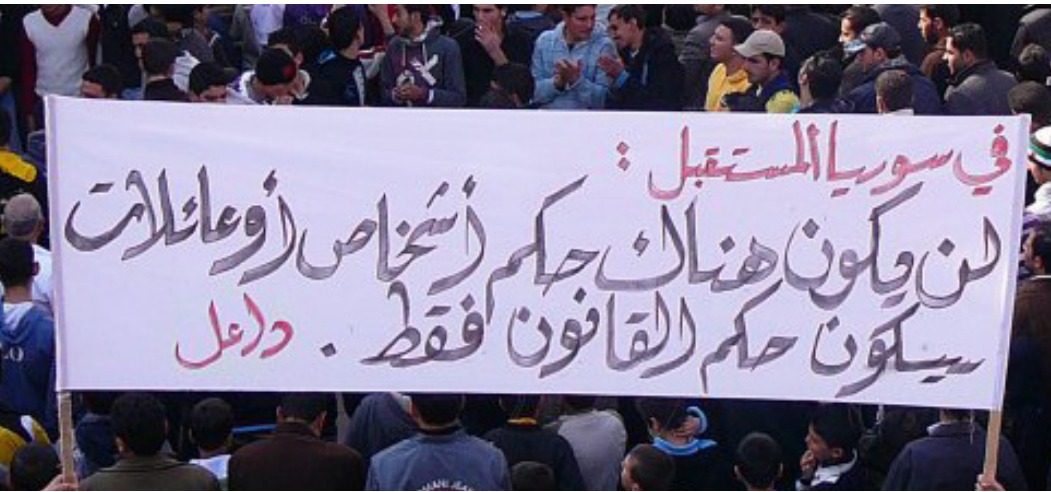 في سوريا المستقبل :
لن يكون هناك حكم أشخاص أو عائلات
سيكون حكم القانون فقط . داعل